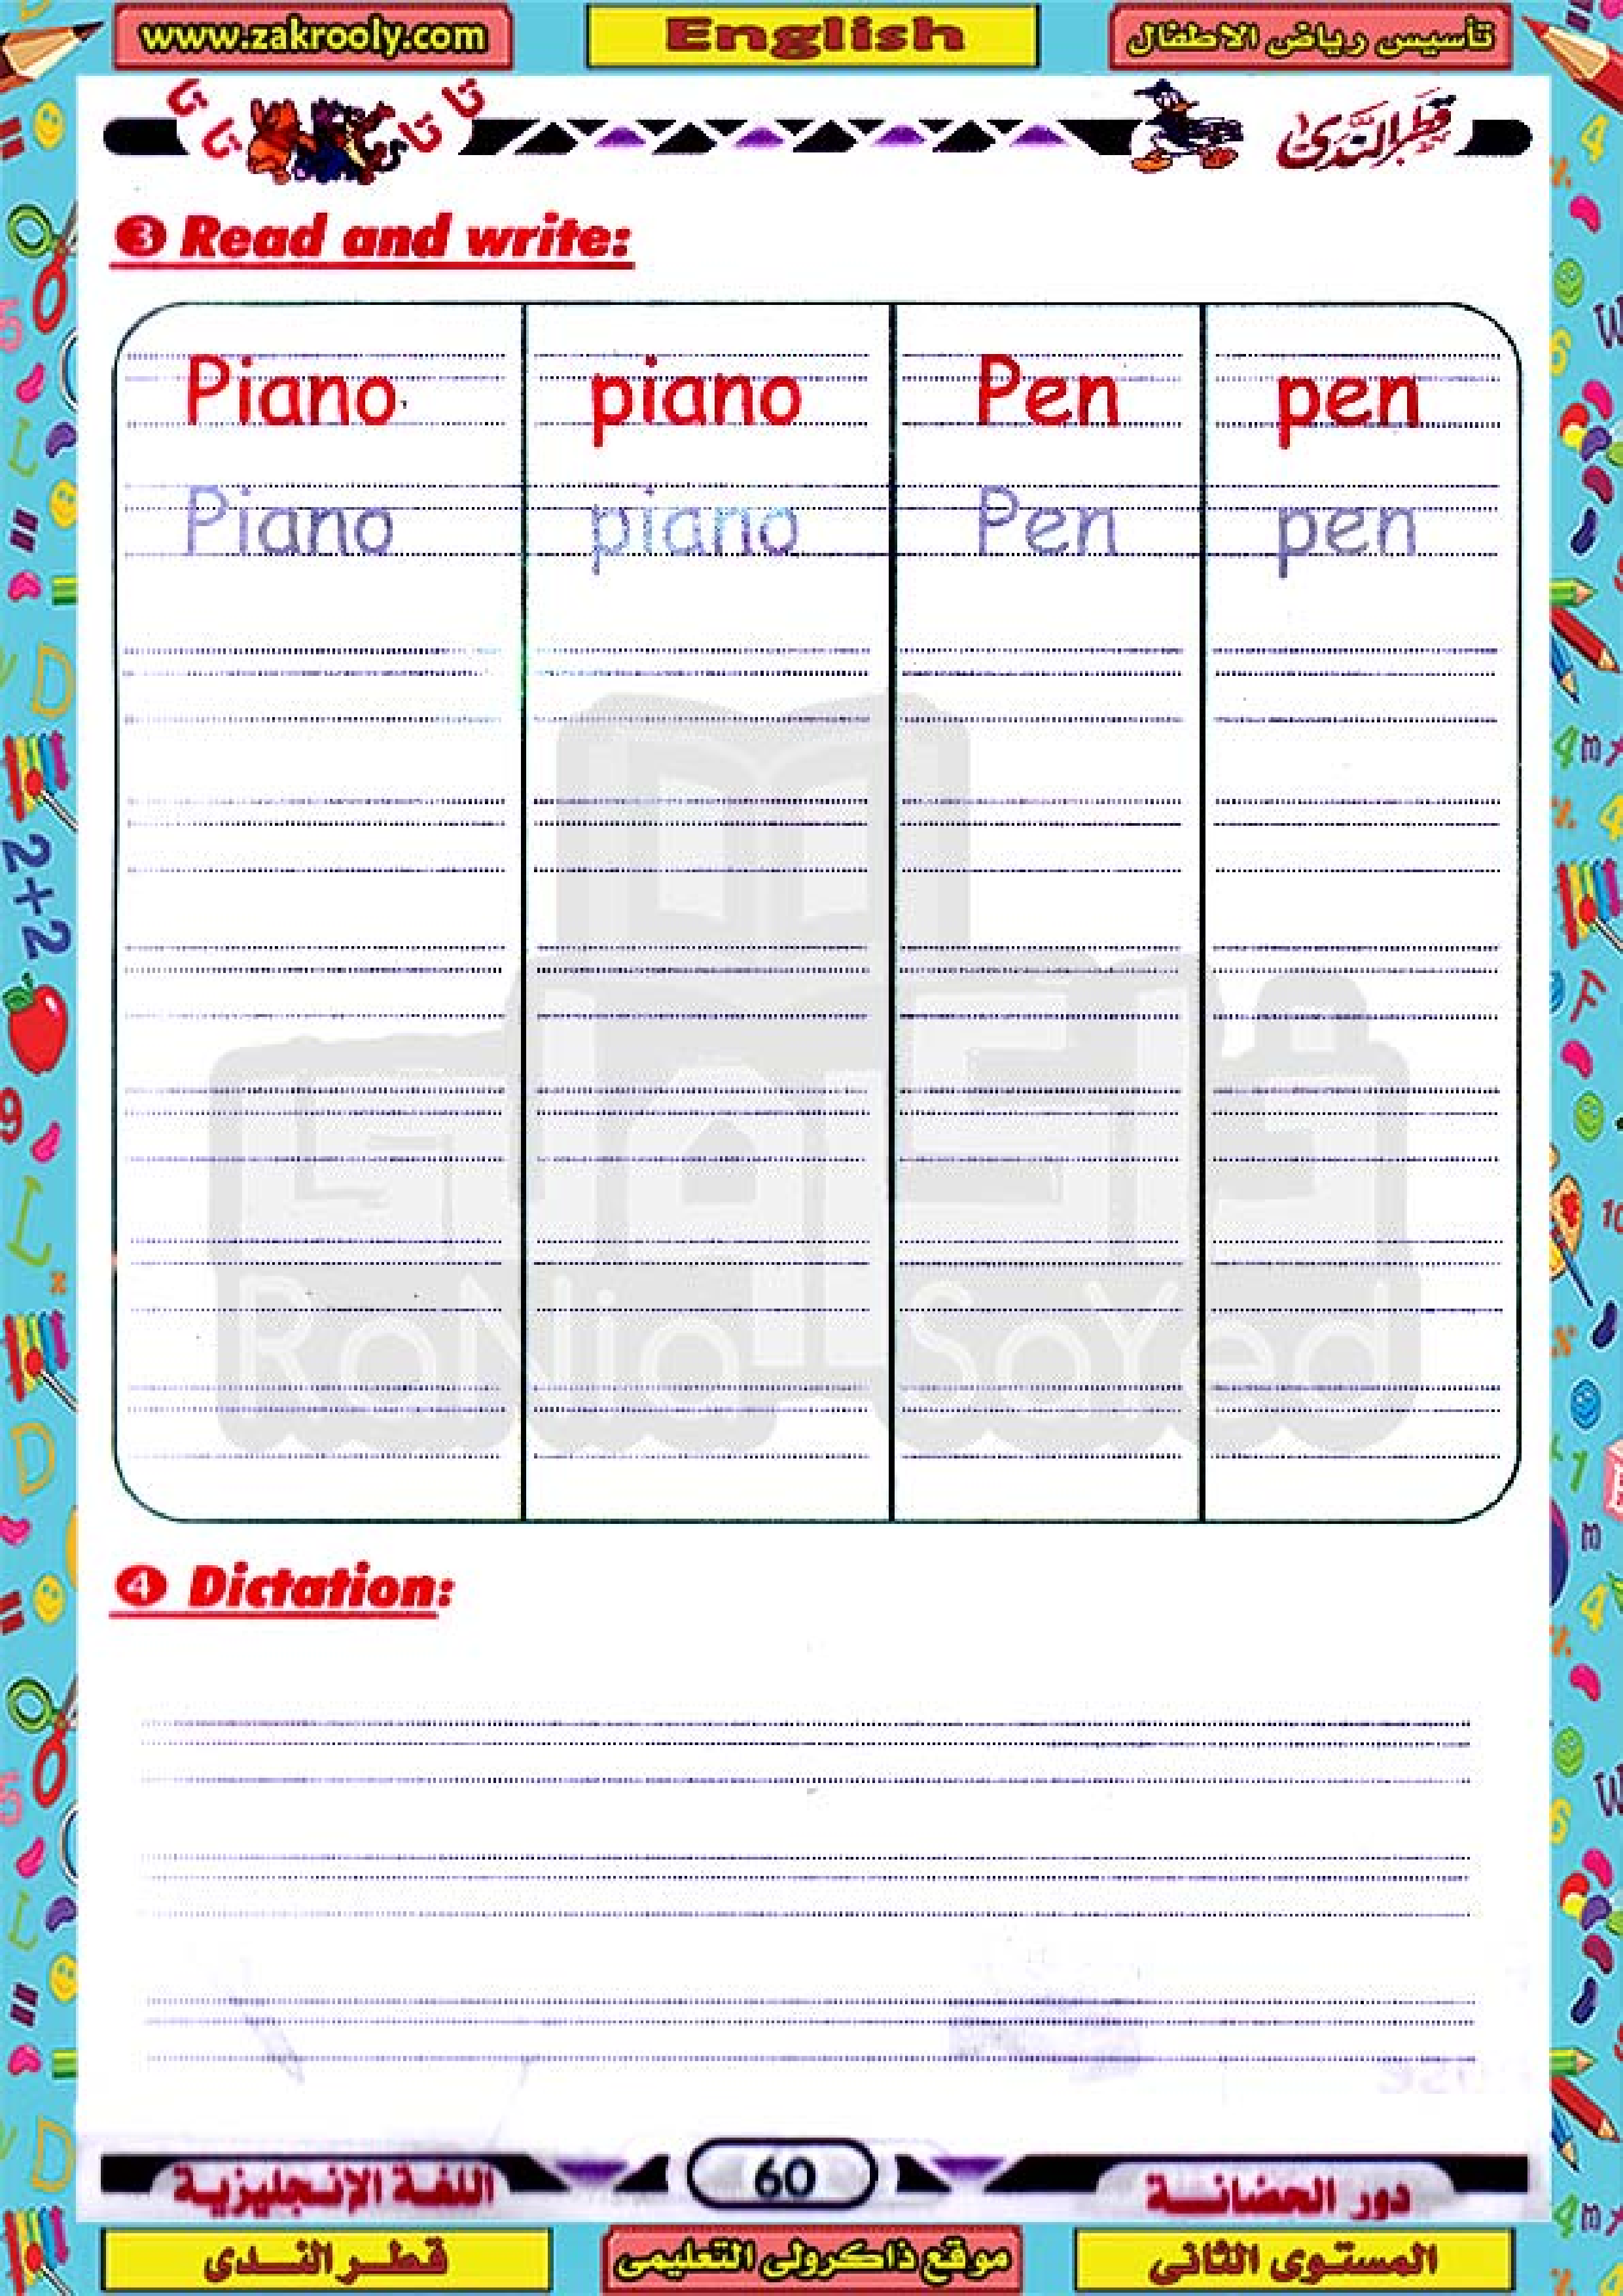 www.zakrooly.com English تأسيس رياض الاطفال
تا تا تا تا قطر الندى
3 Read and write:
Piano piano Pen pen
Piano piano Pen pen
RaNia SaYed
4 Dictation:
اللغة الإنجليزية 60 دور الحضانة
قطر الندى موقع ذاكرولى التعليمى المستوى الثانى